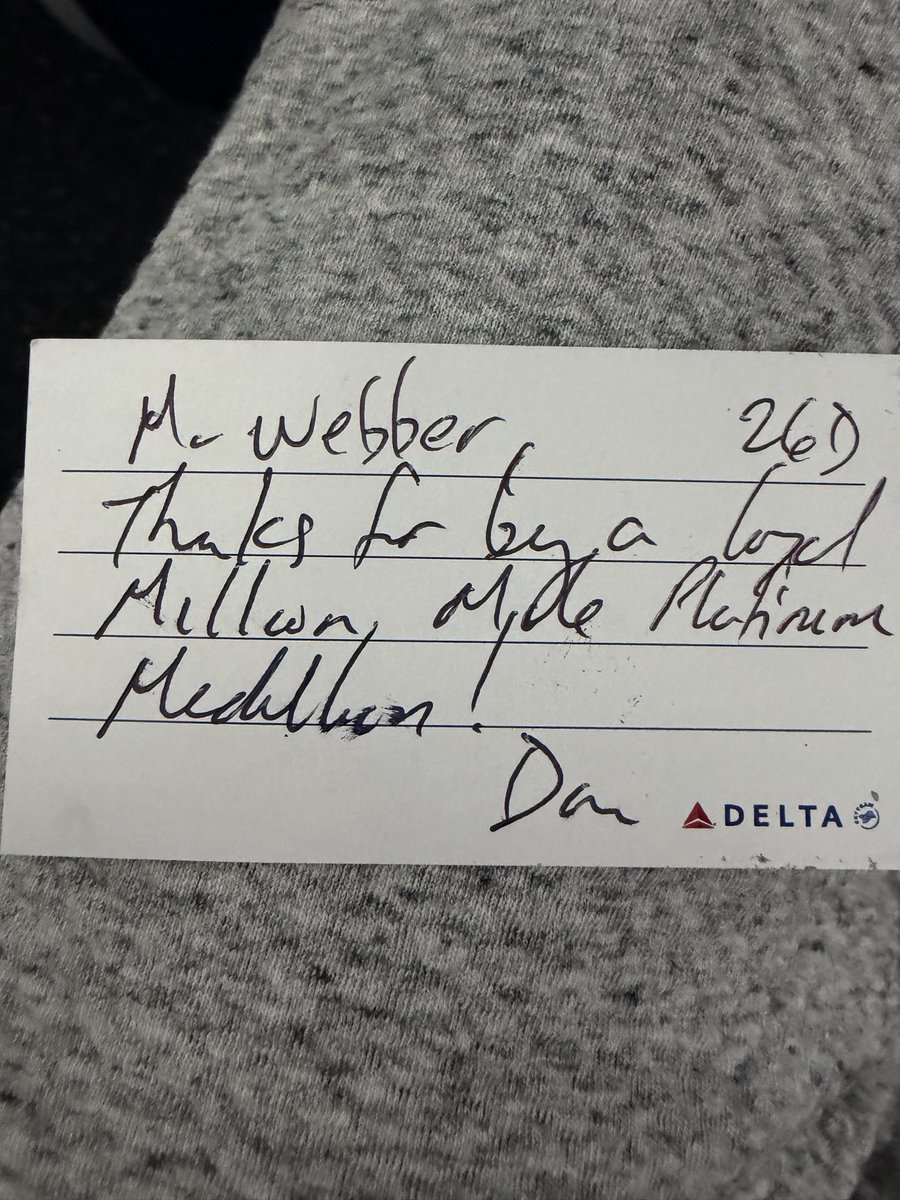 Mr Webber, 26D
Thanks for being a loyal
Million Mile Platinum
Medallion!
Dan
DELTA